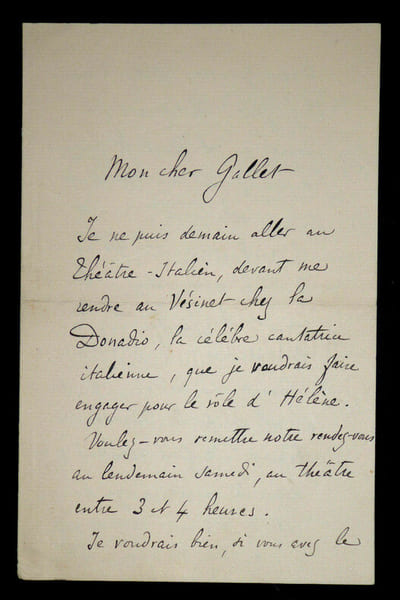 Mon cher Gallet
Je ne puis demain aller au
Théâtre-Italien, devant me
rendre au Vésinet chez la
Donadio, la célèbre cantatrice
italienne, que je voudrais faire
engager pour le rôle d'Hélène.
Voulez-vous remettre notre rendez-vous
au lendemain samedi, au théâtre
entre 3 et 4 heures.
Je voudrais bien, si vous avez le